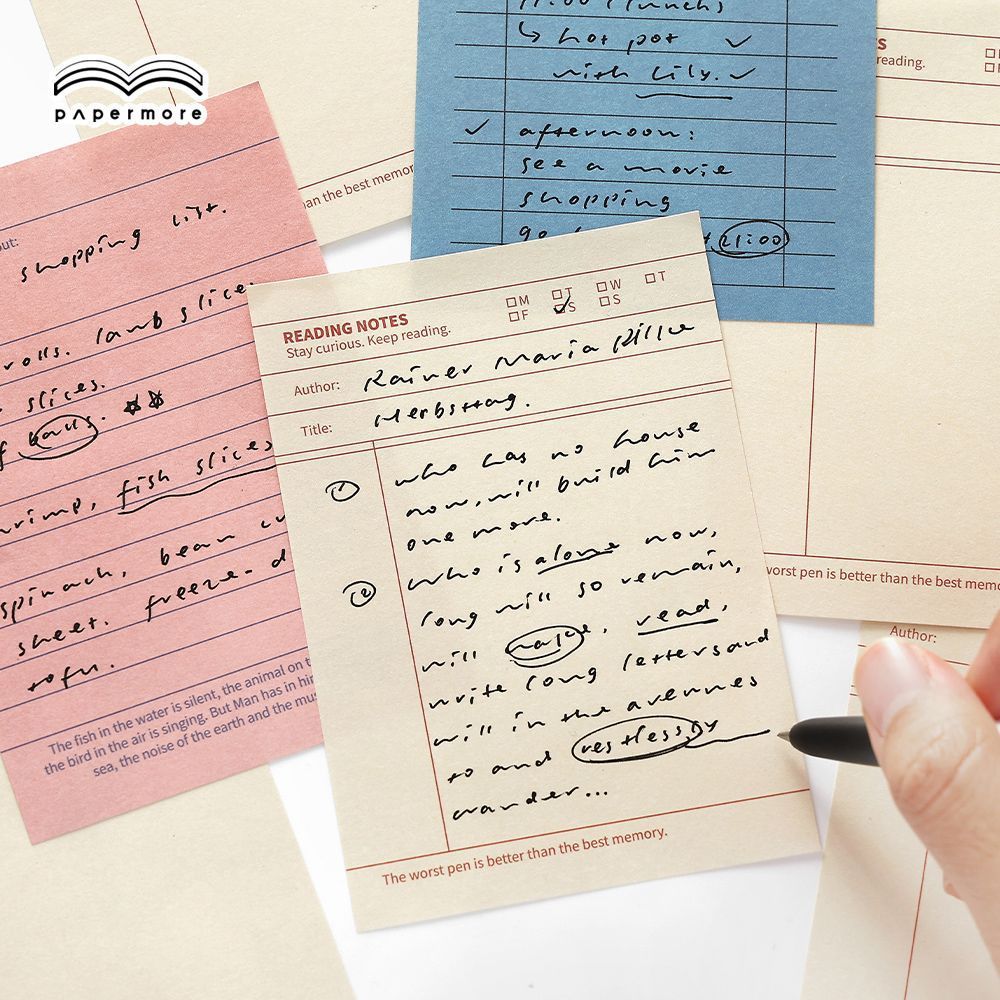 papermore
11:00 (lunch)
↳ hot pot ✓
with Lily. ✓
✓ afternoon:
see a movie
shopping
21:00
S
reading.
an the best memor
out:
shopping list.
rolls. lamb slice
slices.
f balls. ☆☆
hrimp, fish slices
spinach, bean
sheet. freeze-d
tofu.
The fish in the water is silent, the animal on t
the bird in the air is singing. But Man has in hi
sea, the noise of the earth and the mus
READING NOTES
Stay curious. Keep reading.
□M □T □W □T
□F ☑S □S
Author: Rainer Maria Rilke
Title: Herbsttag.
① who has no house
now, will build him
one more.
② who is alone now,
long will so remain,
will wake, read,
write long letters and
will in the avenues
to and restlessly
wander...
The worst pen is better than the best memory.
worst pen is better than the best memo
Author: